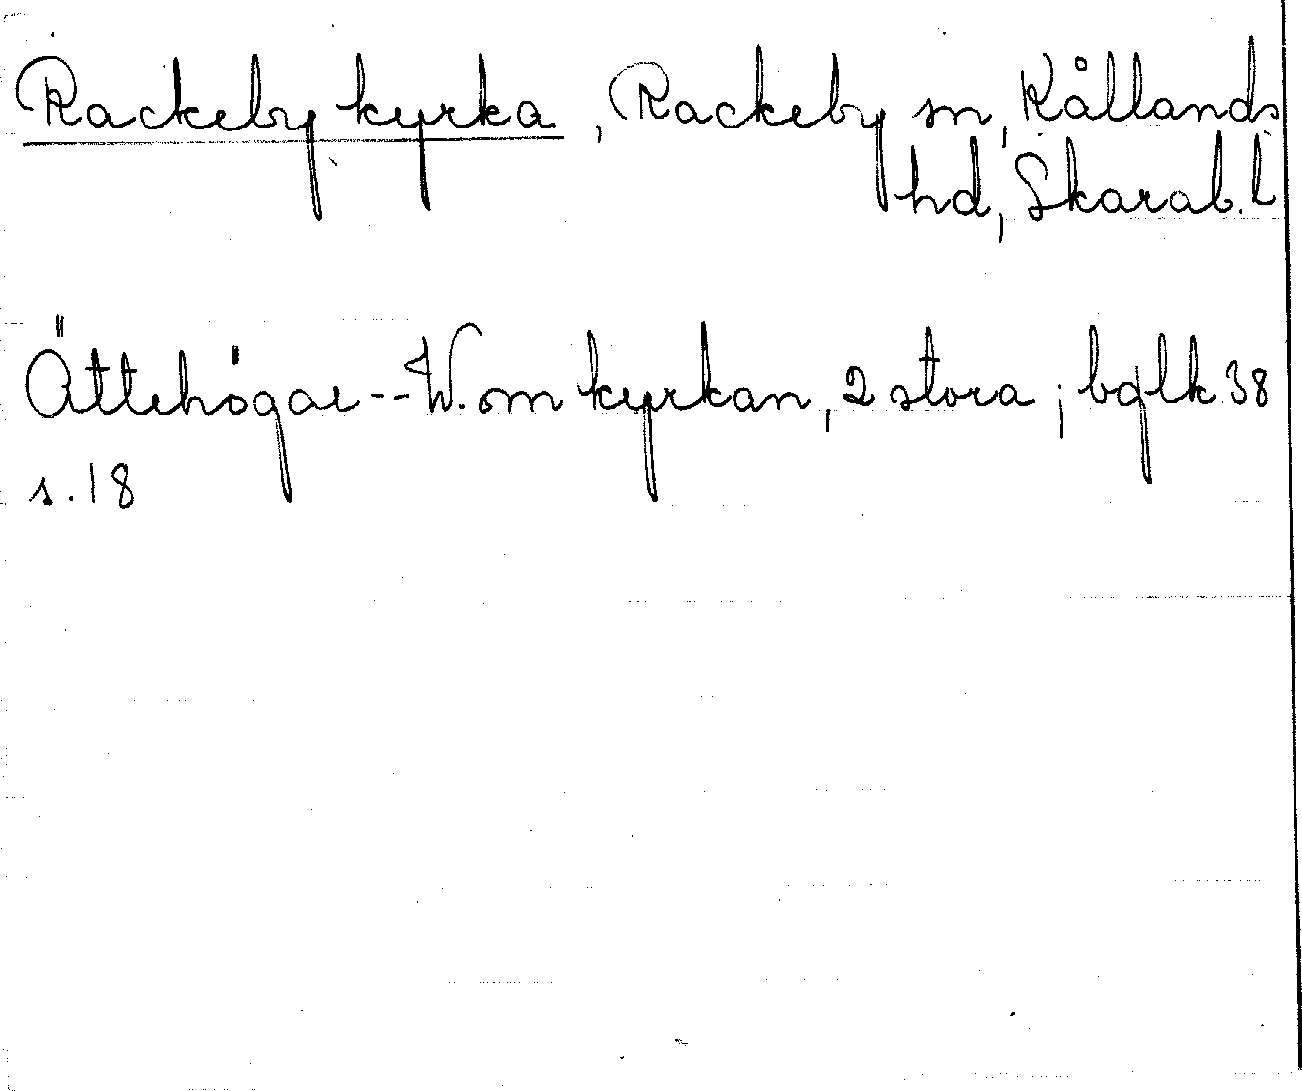 Rackeby kyrka, Rackeby sn, Kållands
hd, Skarab. l
Ättehögar -- W. om kyrkan, 2 stora; bglk 38
s. 18